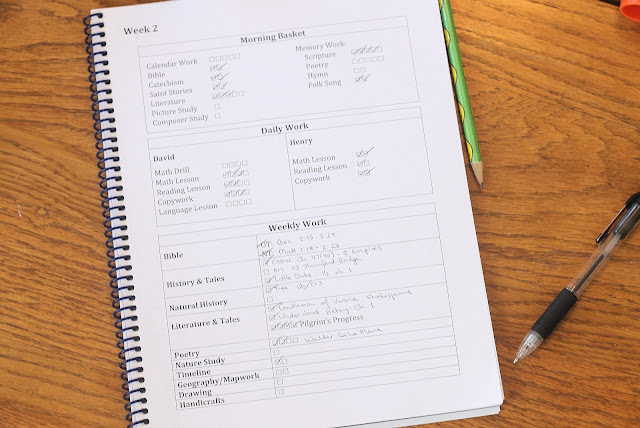 Week 2
Morning Basket
Calendar Work
Bible
Catechism
Saint Stories
Literature
Picture Study
Composer Study
Memory Work
Scripture
Poetry
Hymn
Folk Song
Daily Work
David
Math Drill
Math Lesson
Reading Lesson
Copywork
Language Lesson
Henry
Math Lesson
Reading Lesson
Copywork
Weekly Work
Bible
OT Gen.
NT Matt 1:18 - 2:23
History & Tales
Ch 1
Natural History
Literature & Tales
Gentlemen of Verona Shakespeare
Understood Betsy Ch 1
Pilgrim's Progress
Poetry
Walter de la Mare
Nature Study
Timeline
Geography/Mapwork
Drawing
Handicrafts